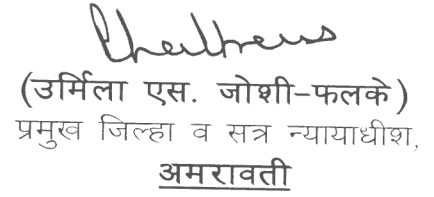 (उर्मिला एस. जोशी-फलके)
प्रमुख जिल्हा व सत्र न्यायाधीश,
अमरावती